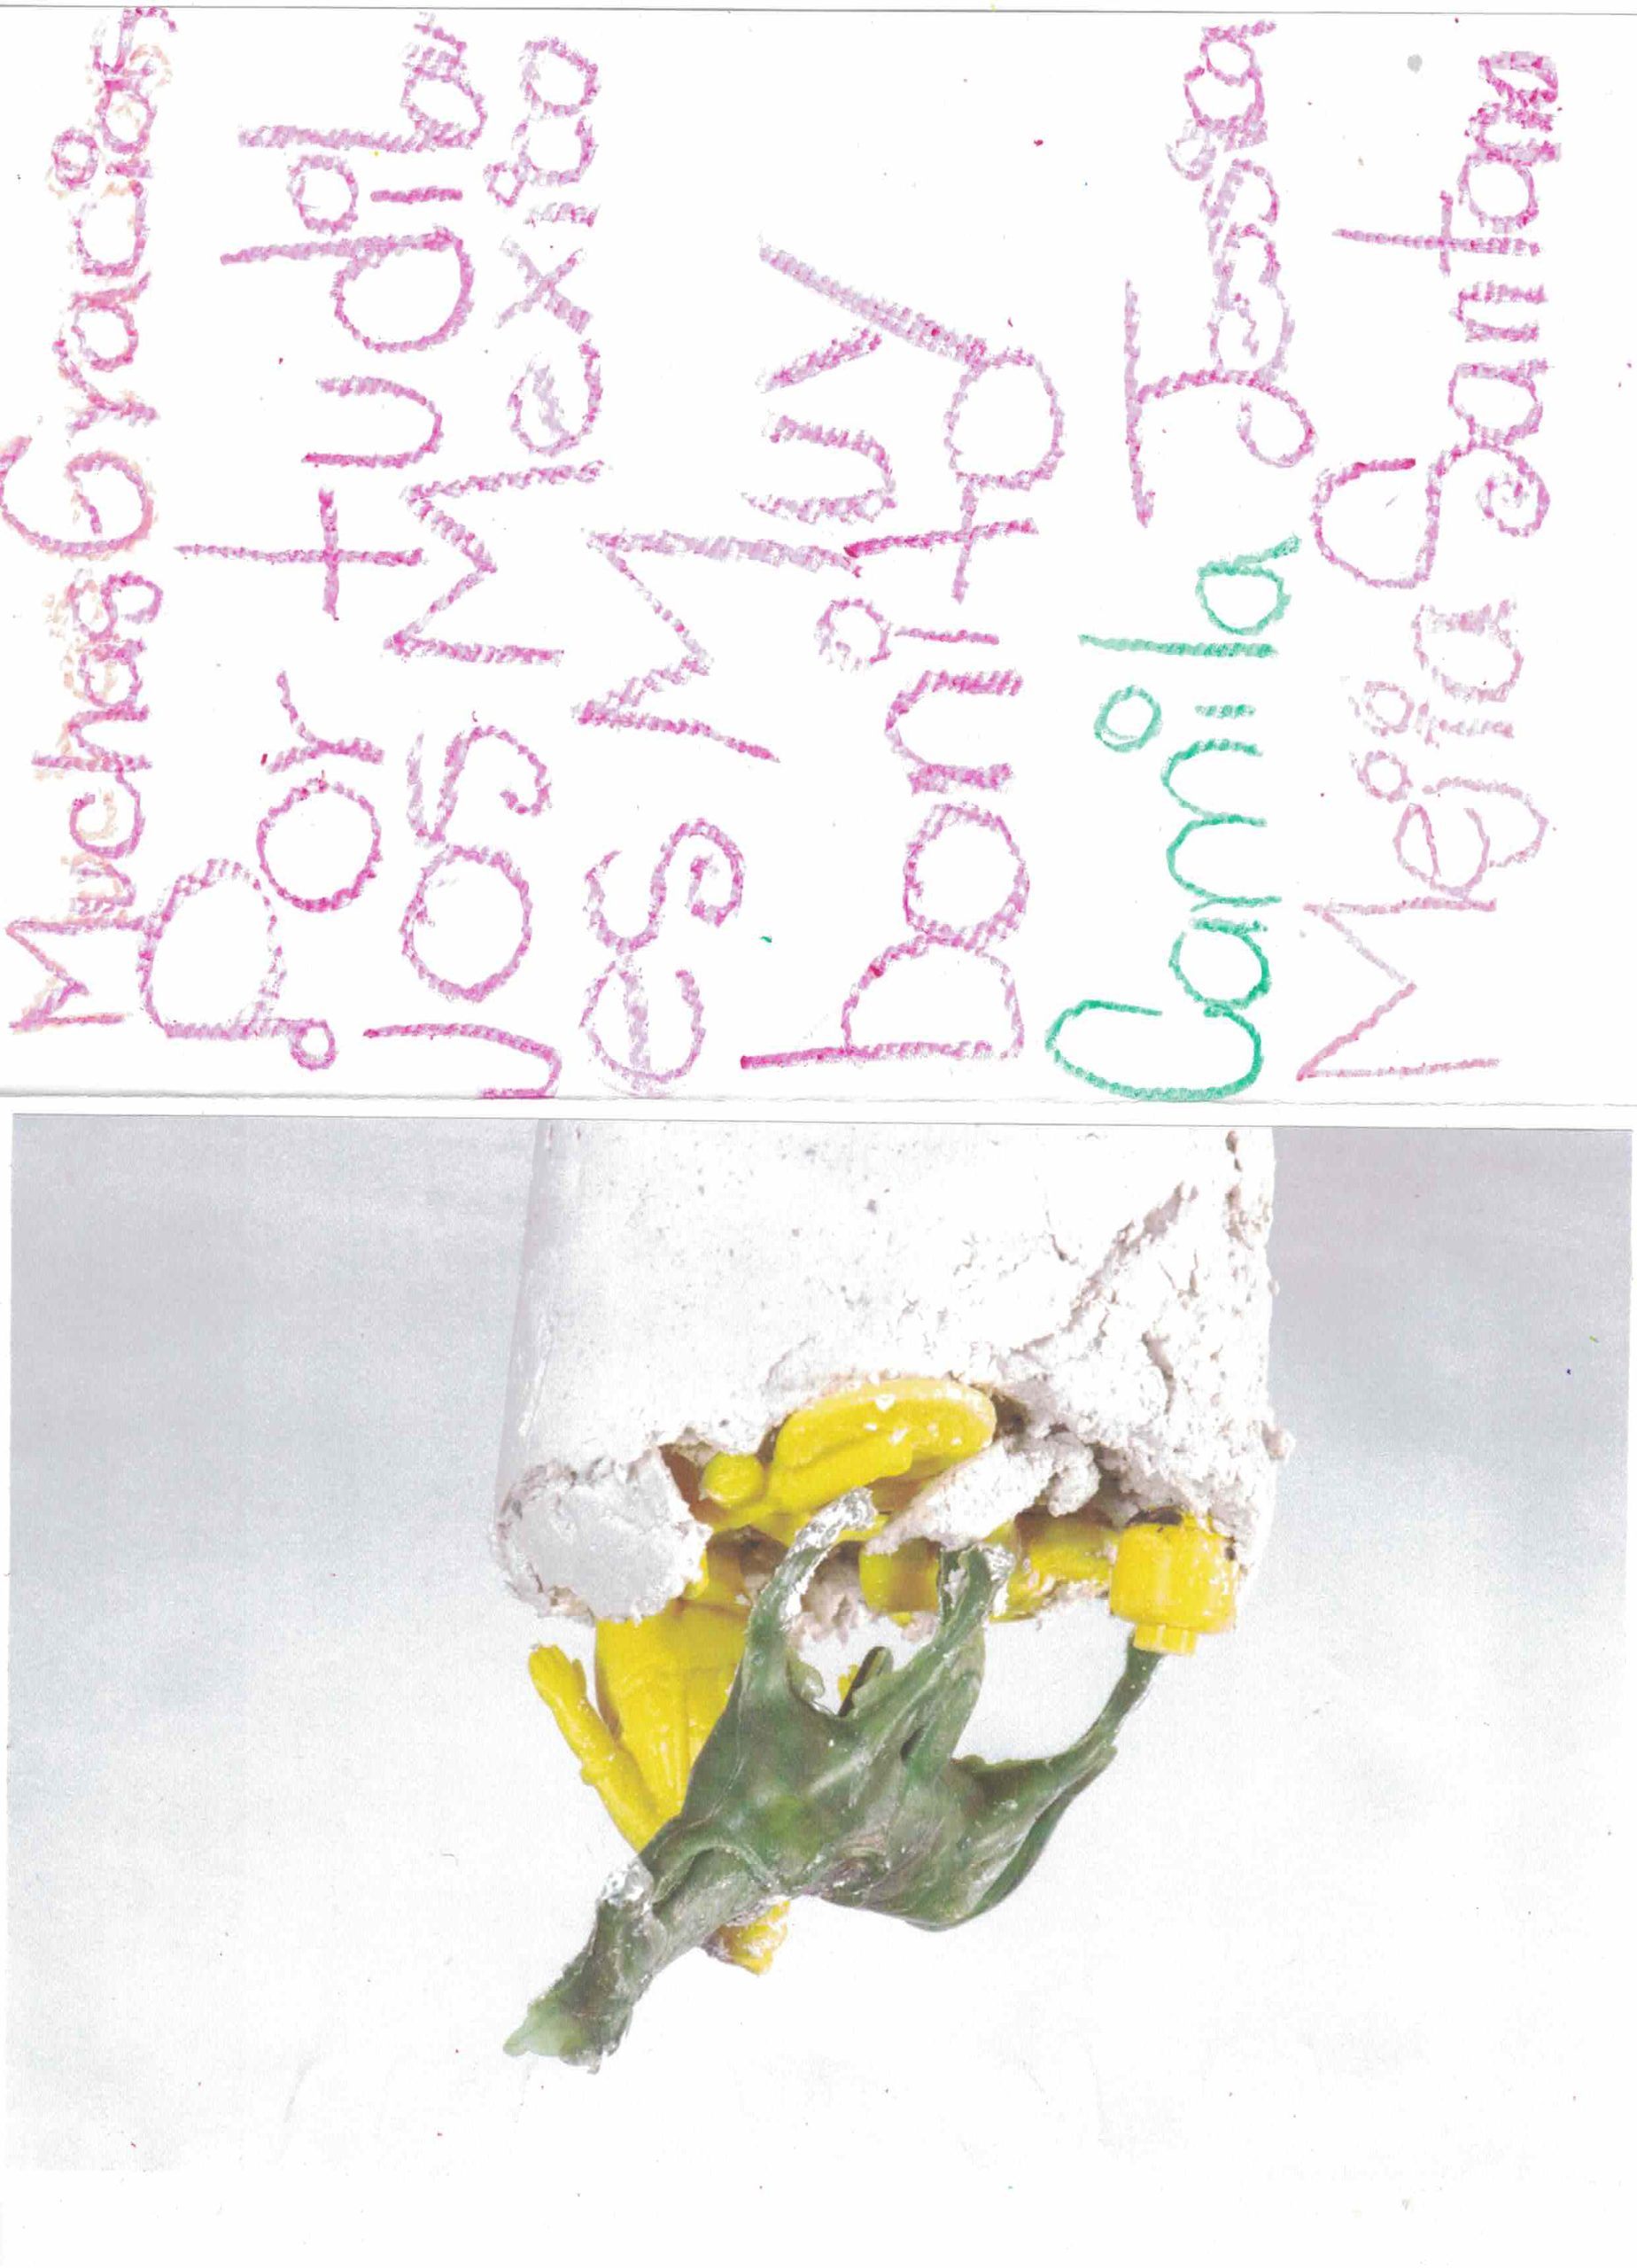 Muchas Gracias
Por tu dibu
Jos Mexico
es Muy
bonito
Camila
Mejia Santan